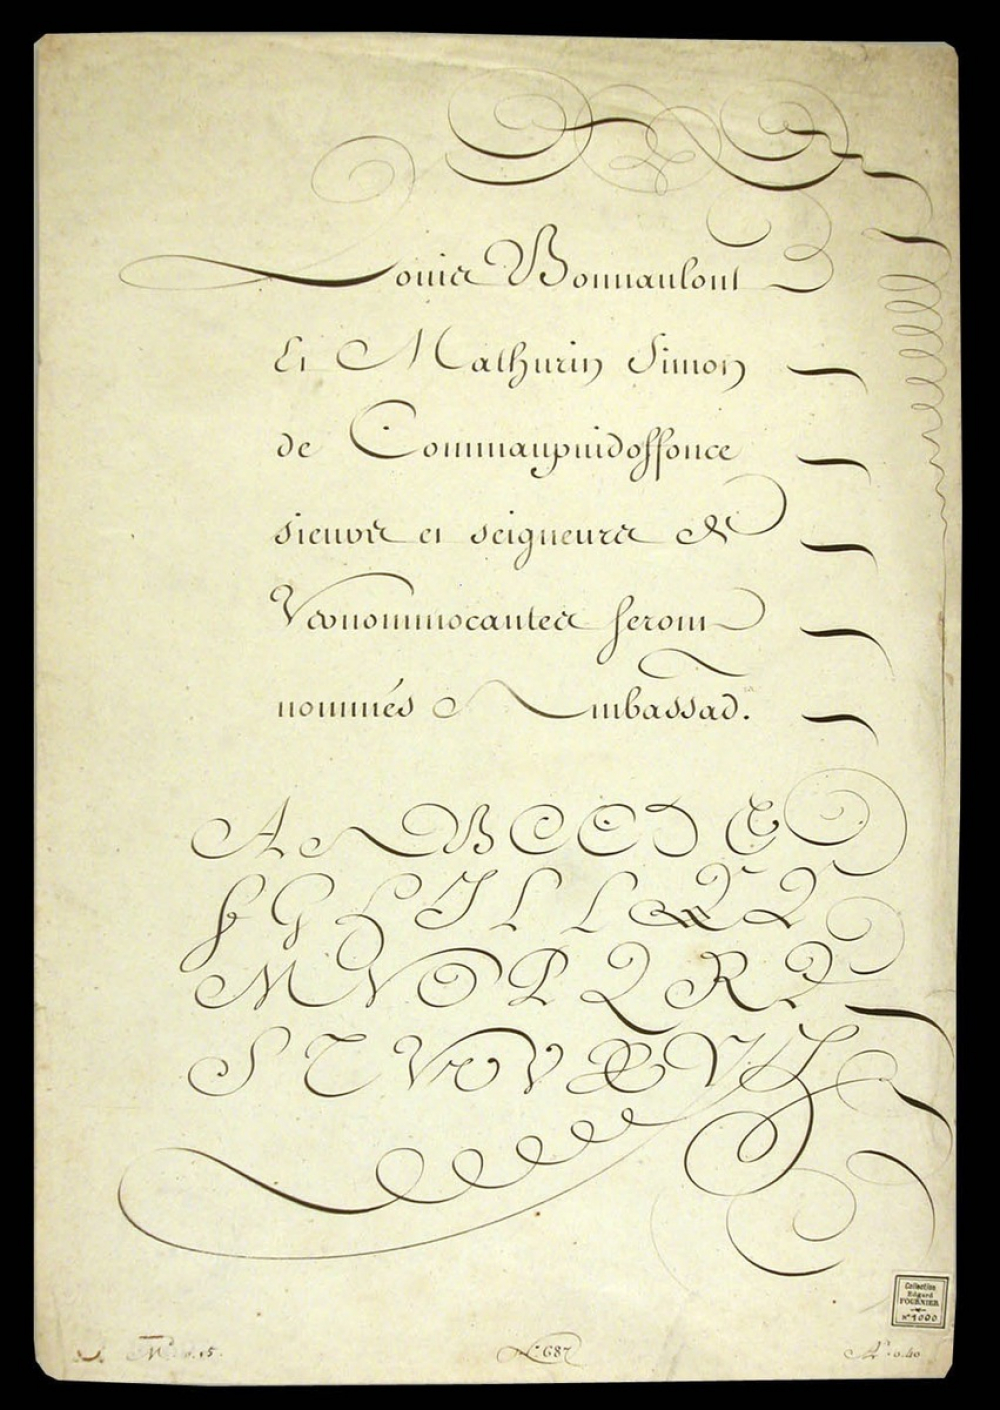 Louis Bonnaulont
Et Mathurin Simon
de Commanpuidoffonce
sieurs et seigneurs de
Vanonimocantes seront
nommés Ambassad.
A A B C C D E
f G H I L L
M N O P Q R
S T V V X Y
687
Collection
Edgard
FOURNIER
N° 1000